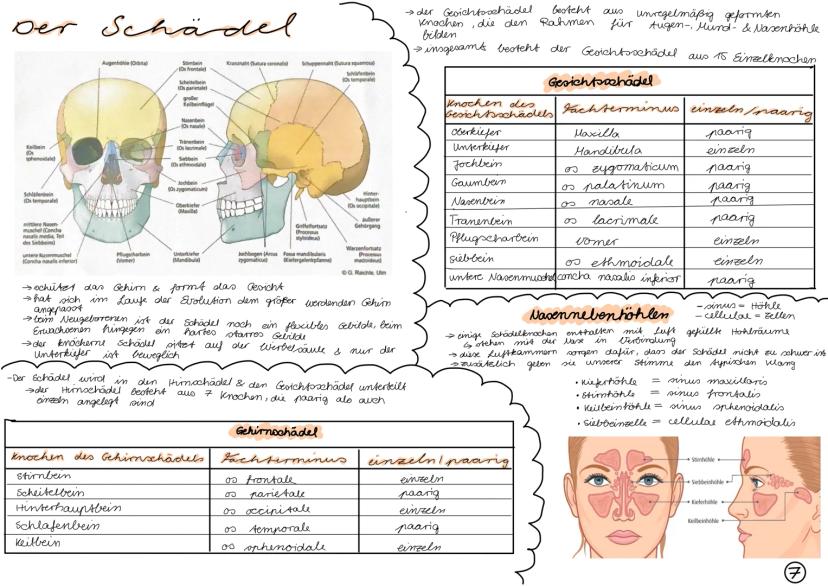 Der Schädel
Augenhöhle (Orbita)
Stirnbein
(Os frontale)
Scheitelbein
(Os parietale)
großer
Keilbeinflügel
Nasenbein
(Os nasale)
Tränenbein
(Os lacrimale)
Siebbein
(Os ethmoidale)
Jochbein
(Os zygomaticum)
Oberkiefer
(Maxilla)
Unterkiefer
(Mandibula)
Keilbein
(Os
sphenoidale)
Schläfenbein
(Os temporale)
mittlere Nasen-
muschel (Concha
nasalis media, Teil
des Siebbeins)
untere Nasenmuschel
(Concha nasalis inferior)
Pflugscharbein
(Vomer)
Kranznaht (Sutura coronalis)
Schuppennaht (Sutura squamosa)
Schläfenbein
(Os temporale)
Hinter-
hauptbein
(Os occipitale)
äußerer
Gehörgang
Warzenfortsatz
(Processus
mastoideus)
Griffelfortsatz
(Processus
styloideus)
Jochbogen (Arcus
zygomaticus)
Fossa mandibularis
(Kiefergelenkpfanne)
© G. Raichle, Ulm
→ schützt das Gehirn & formt das Gesicht
→ hat sich im Laufe der Evolution dem größer werdenden Gehirn
angepasst
→ beim Neugeborenen ist der Schädel noch ein flexibles Gebilde, beim
Erwachsenen hingegen ein hartes starres Gebilde
→ der knöcherne Schädel sitzt auf der Wirbelsäule & nur der
Unterkiefer ist beweglich
- Der Schädel wird in den Hirnschädel & den Gesichtsschädel unterteilt
→ der Hirnschädel besteht aus 7 Knochen, die paarig als auch
einzeln angelegt sind
Gehirnschädel
Knochen des Gehirnschädels Fachterminus einzeln/paarig
Stirnbein os frontale einzeln
Scheitelbein os parietale paarig
Hinterhauptbein os occipitale einzeln
Schläfenbein os temporale paarig
Keilbein os sphenoidale einzeln
→ der Gesichtsschädel besteht aus unregelmäßig geformten
Knochen, die den Rahmen für Augen-, Mund- & Nasenhöhle
bilden
→ insgesamt besteht der Gesichtsschädel aus 15 Einzelknochen
Gesichtsschädel
Knochen des
Gesichtsschädels Fachterminus einzeln/paarig
Oberkiefer Maxilla paarig
Unterkiefer Mandibula einzeln
Jochbein os zygomaticum paarig
Gaumbein os palatinum paarig
Nasenbein os nasale paarig
Tränenbein os lacrimale paarig
Pflugscharbein vomer einzeln
Siebbein os ethmoidale einzeln
untere Nasenmuschel concha nasalis inferior paarig
Nasennebenhöhlen
- sinus = Höhle
- cellulae = Zellen
→ einige Schädelknochen enthalten mit Luft gefüllte Hohlräume
↳ stehen mit der Nase in Verbindung
→ diese Luftkammern sorgen dafür, dass der Schädel nicht zu schwer ist
→ zusätzlich geben sie unserer Stimme den typischen Klang
• Kieferhöhle = sinus maxillaris
• Stirnhöhle = sinus frontalis
• Keilbeinhöhle = sinus sphenoidalis
• Siebbeinzelle = cellulae ethmoidalis
Stirnhöhle
Siebbeinhöhle
Kieferhöhle
Keilbeinhöhle
7